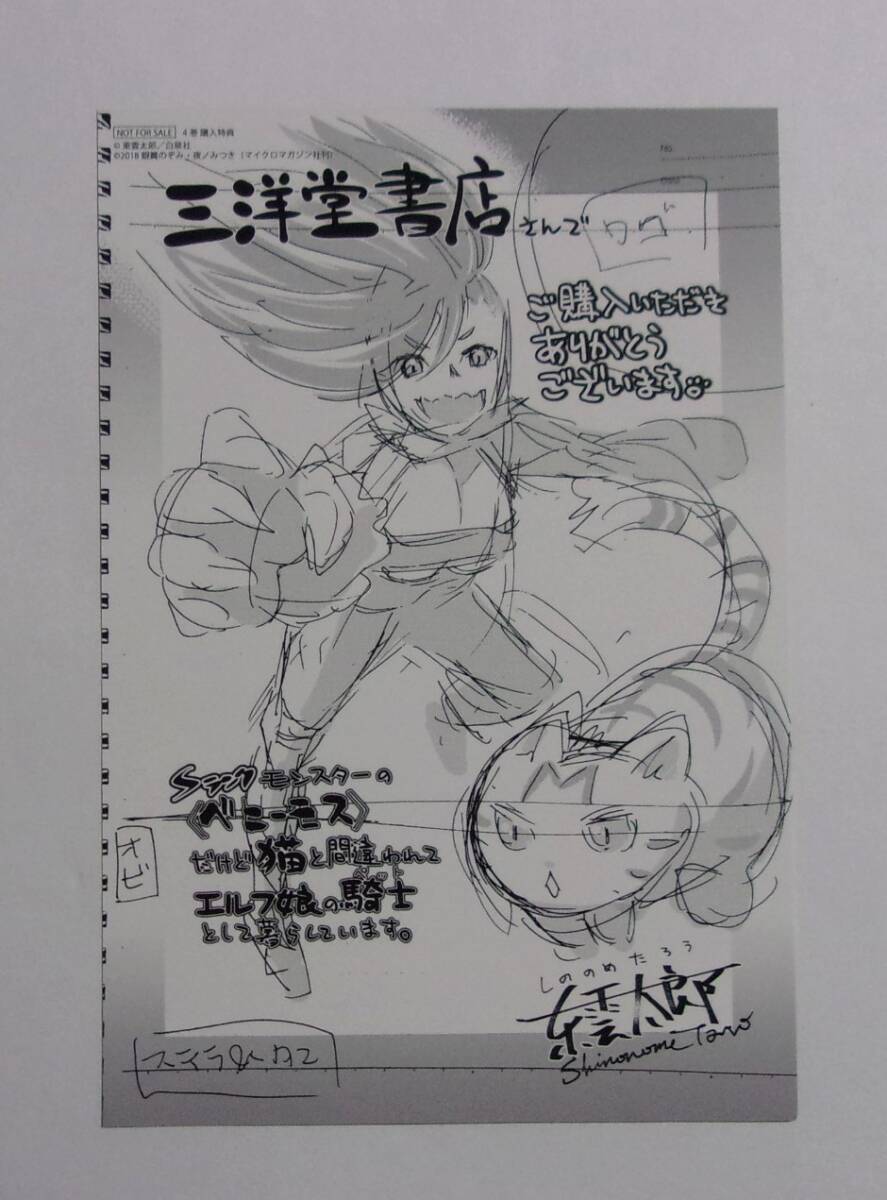 NOT FOR SALE 4巻 購入特典
© 東雲太郎/白泉社
©2018 銀翼のぞみ・夜ノみつき(マイクロマガジン社刊)
三洋堂書店さんで
ロゴ
ご購入いただき
ありがとう
ございます
Sランクモンスターの
《ベヒーモス》
だけど猫と間違われて
エルフ娘の騎士
ペット
として暮らしています。
オビ
しののめたろう
東雲太郎
Shinonome Taro